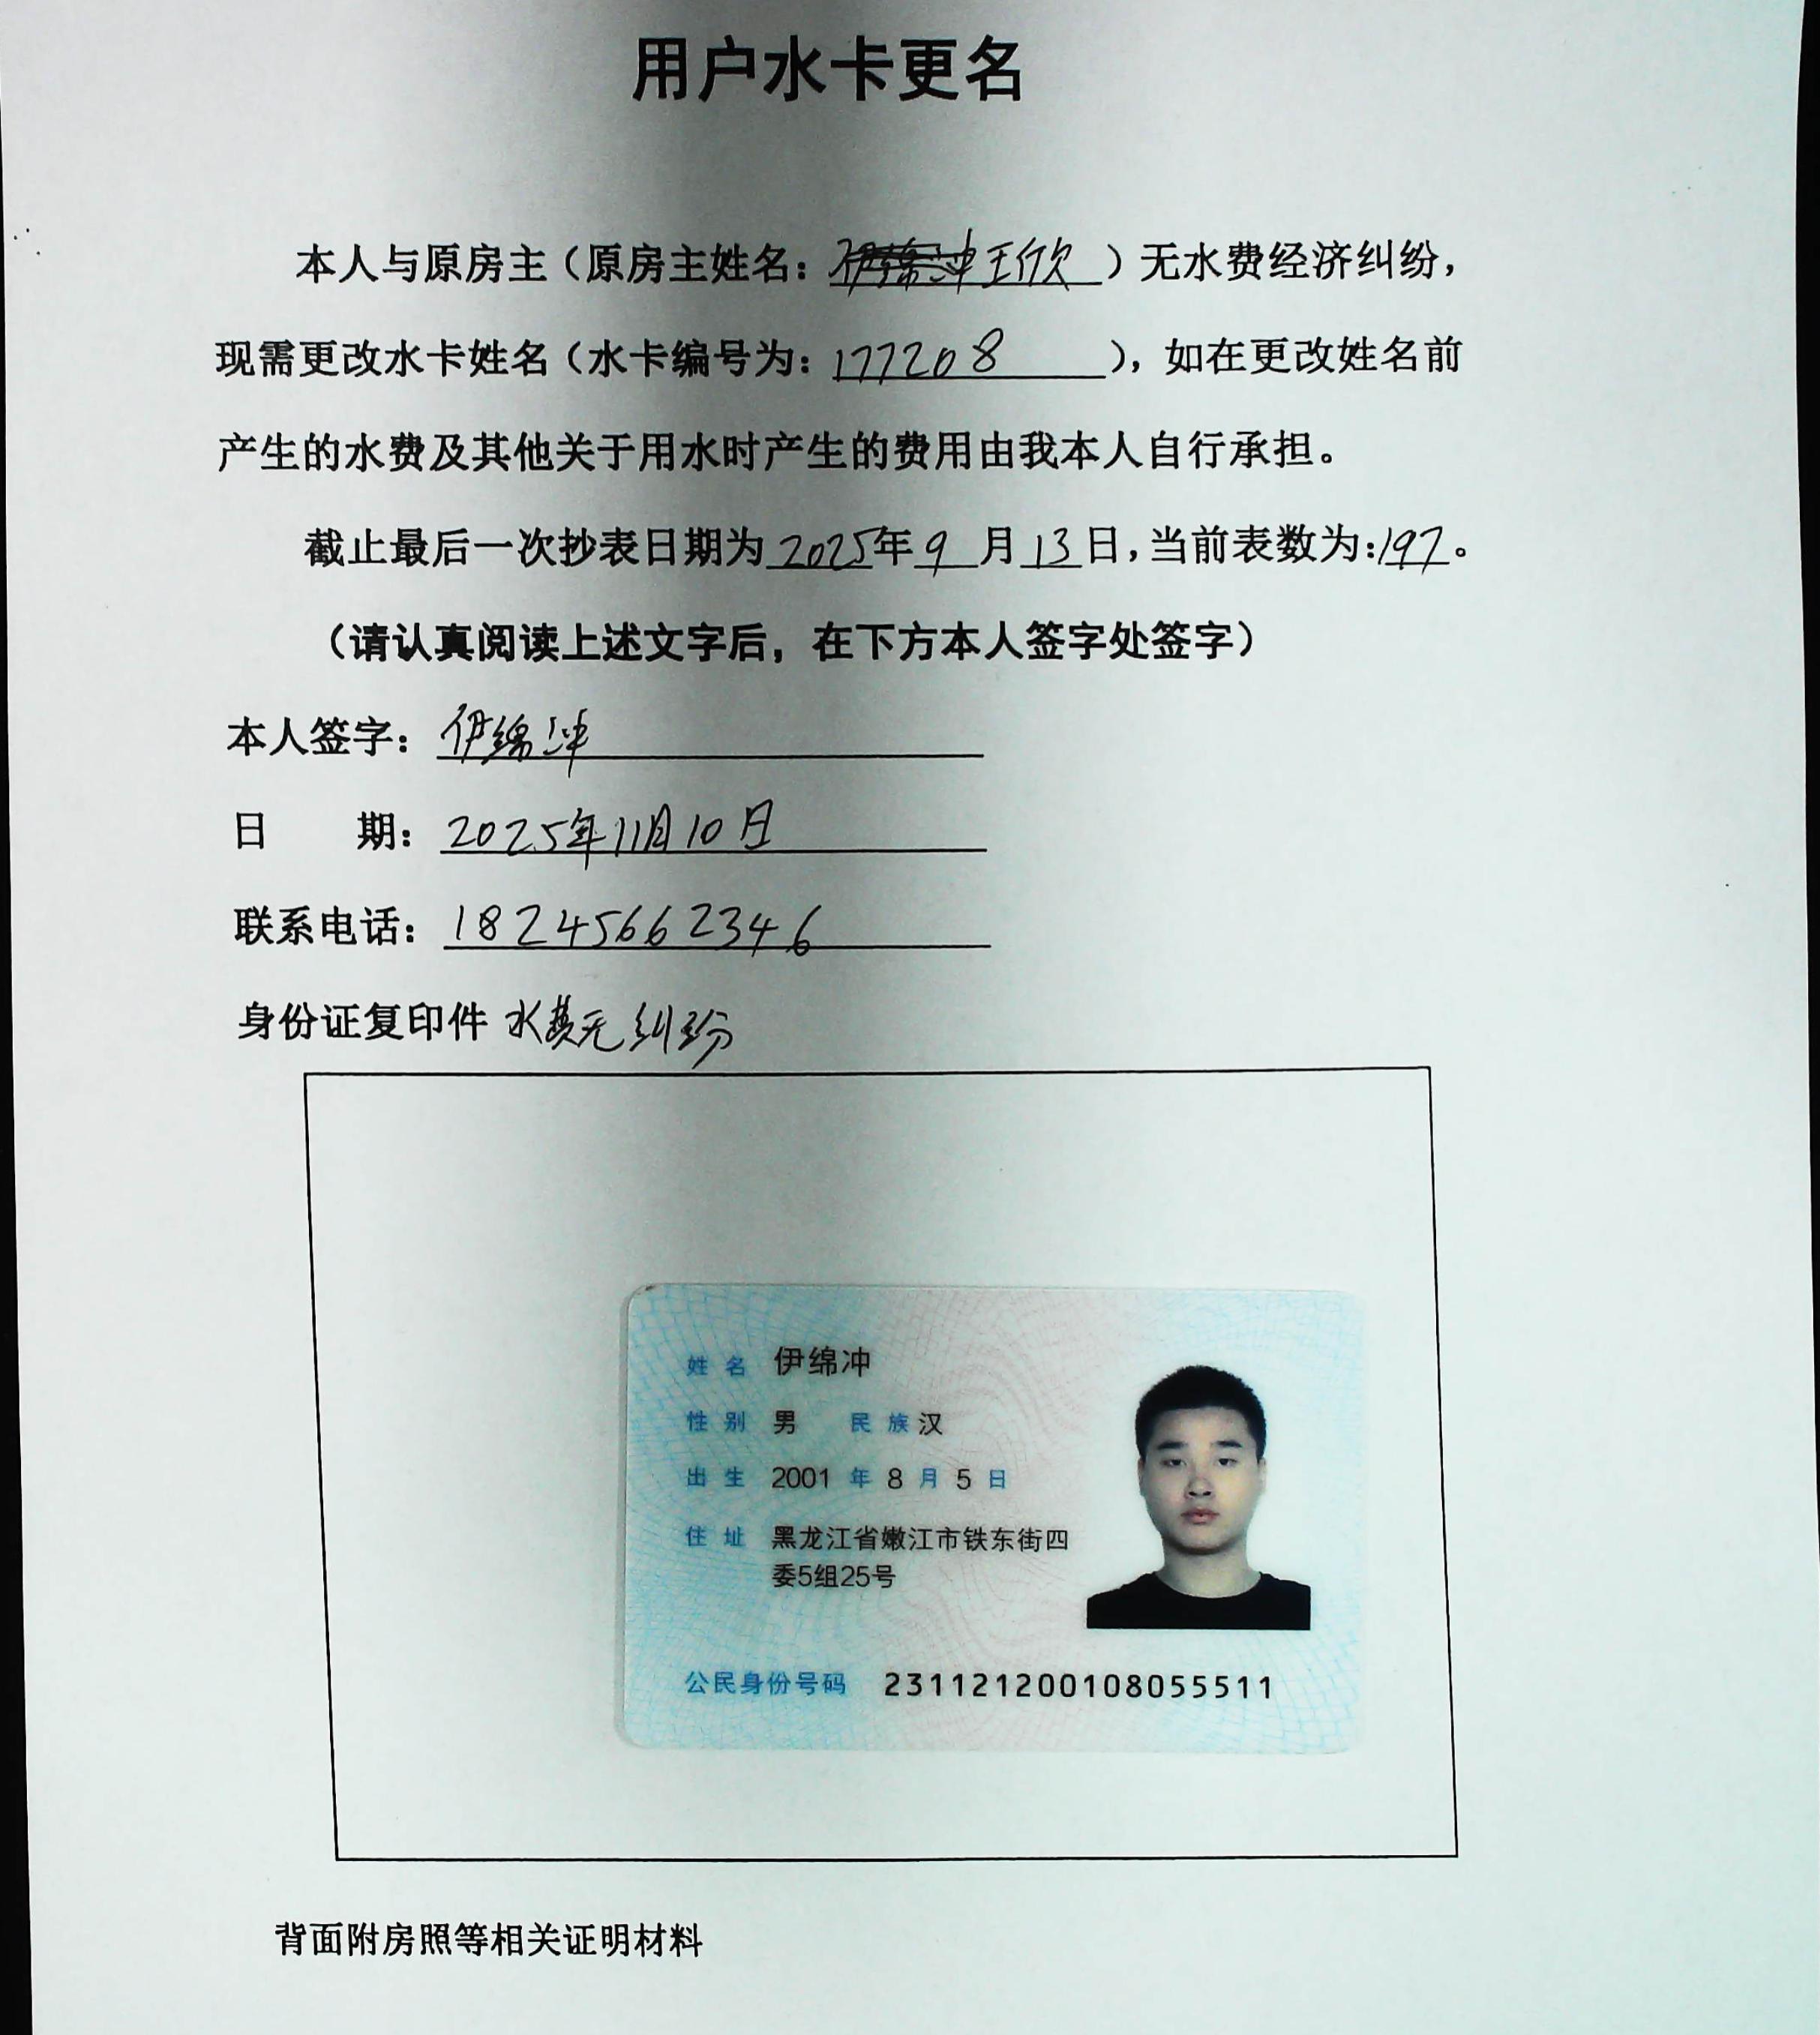 用户水卡更名
本人与原房主（原房主姓名：伊绵冲王欣）无水费经济纠纷，
现需更改水卡姓名（水卡编号为：177208），如在更改姓名前
产生的水费及其他关于用水时产生的费用由我本人自行承担。
截止最后一次抄表日期为2025年9月13日，当前表数为：197。
（请认真阅读上述文字后，在下方本人签字处签字）
本人签字：伊绵冲
日 期：2025年11月10日
联系电话：18245662346
身份证复印件 水费无纠纷
姓名 伊绵冲
性别 男 民族 汉
出生 2001年8月5日
住址 黑龙江省嫩江市铁东街四
委5组25号
公民身份号码 231121200108055511
背面附房照等相关证明材料